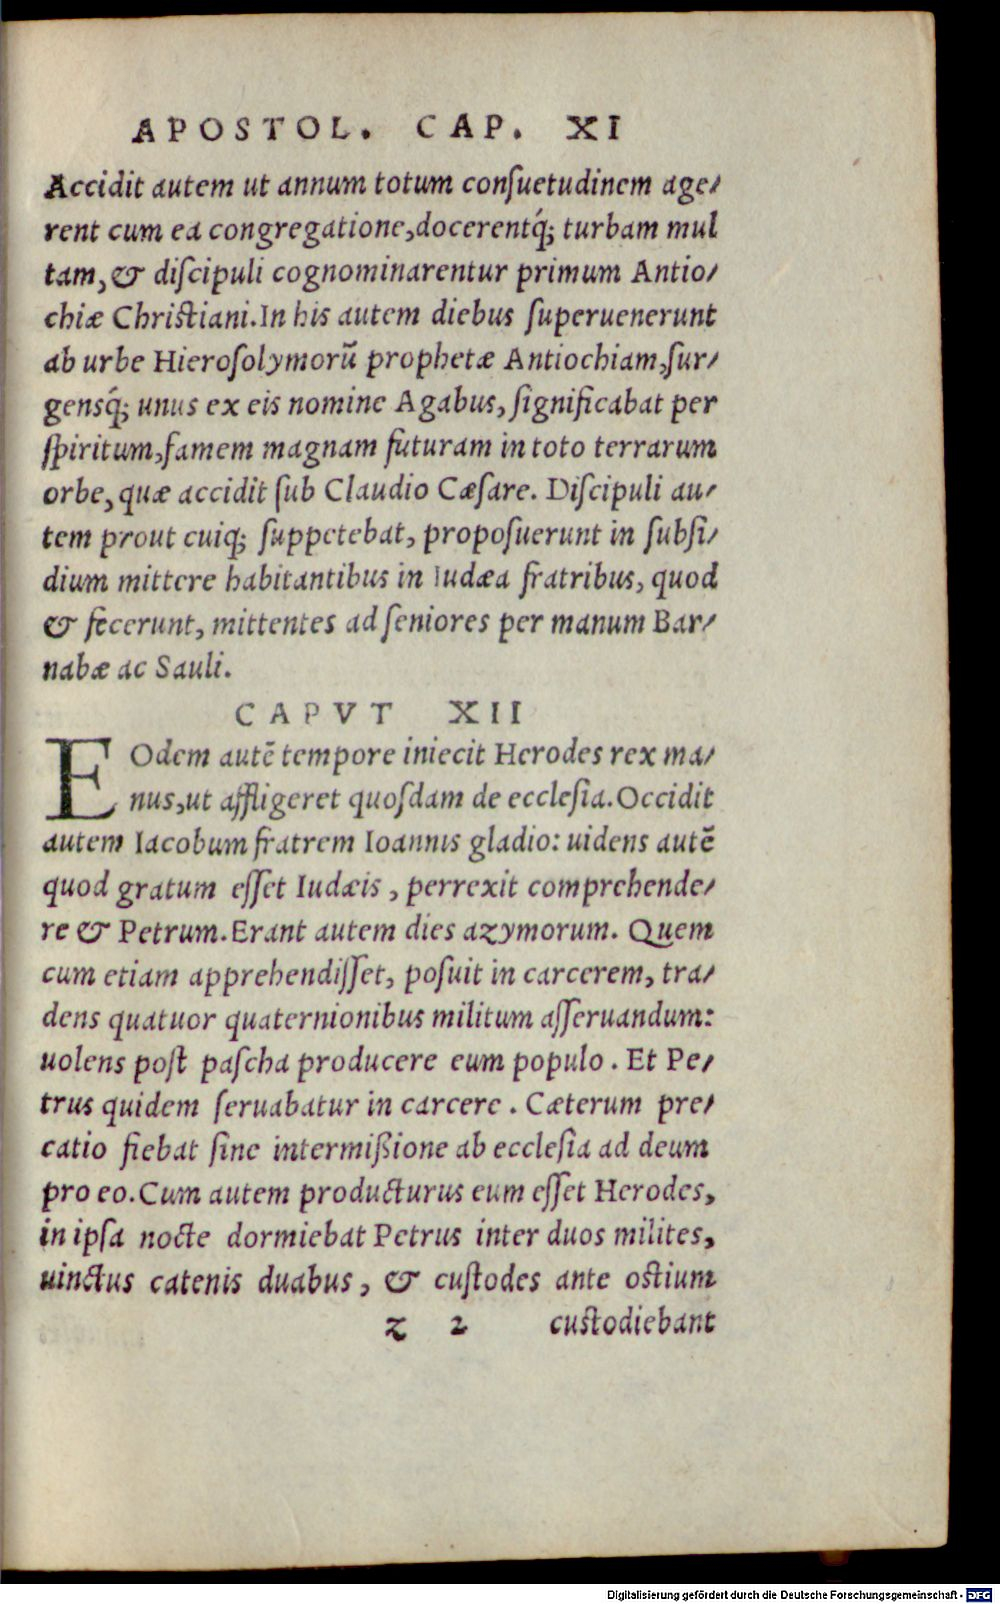 APOSTOL. CAP. XI
Accidit autem ut annum totum conſuetudinem age/
rent cum ea congregatione,docerentq́; turbam mul
tam,& diſcipuli cognominarentur primum Antio/
chiæ Chriſtiani.In his autem diebus ſuperuenerunt
ab urbe Hieroſolymorū prophetæ Antiochiam,ſur/
gensq́; unus ex eis nomine Agabus, ſignificabat per
ſpiritum,famem magnam futuram in toto terrarum
orbe, quæ accidit ſub Claudio Cæſare. Diſcipuli au/
tem prout cuiq; ſuppetebat, propoſuerunt in ſubſi/
dium mittere habitantibus in Iudæa fratribus, quod
& fecerunt, mittentes ad ſeniores per manum Bar/
nabæ ac Sauli.
CAPVT XII
EOdem autē tempore iniecit Herodes rex ma/
nus,ut affligeret quoſdam de eccleſia.Occidit
autem Iacobum fratrem Ioannis gladio: uidens autē
quod gratum eſſet Iudæis , perrexit comprehende/
re & Petrum.Erant autem dies azymorum. Quem
cum etiam apprehendiſſet, poſuit in carcerem, tra/
dens quatuor quaternionibus militum aſſeruandum:
uolens poſt paſcha producere eum populo . Et Pe/
trus quidem ſeruabatur in carcere . Cæterum pre/
catio fiebat ſine intermißione ab eccleſia ad deum
pro eo.Cum autem producturus eum eſſet Herodes,
in ipſa nocte dormiebat Petrus inter duos milites,
uinctus catenis duabus , & cuſtodes ante oſtium
z 2 cuſtodiebant
Digitalisierung gefördert durch die Deutsche Forschungsgemeinschaft - DFG